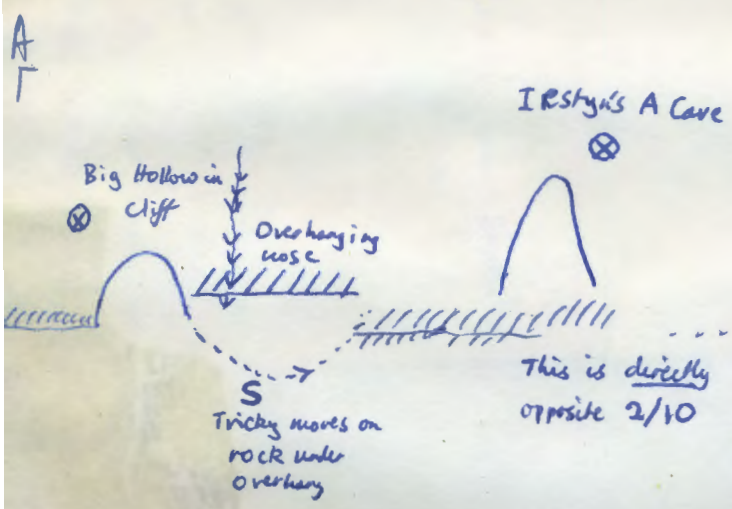 A
Big Hollow in
cliff
Overhanging
nose
A Cave
S
Tricky moves on
rock under
overhang
This is directly
opposite 2/10